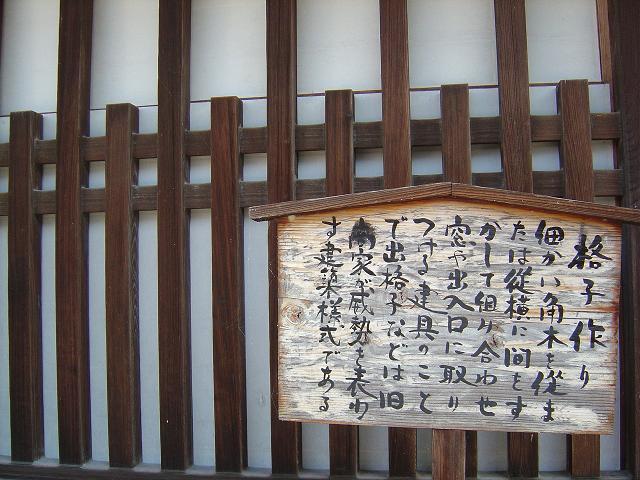 格子作り
細かい角木を縦ま
たは縦横に間をす
かして組み合わせ
窓や出入口に取り
つける建具のこと
で出格子などは旧
商家が威勢を表わ
す建築様式である